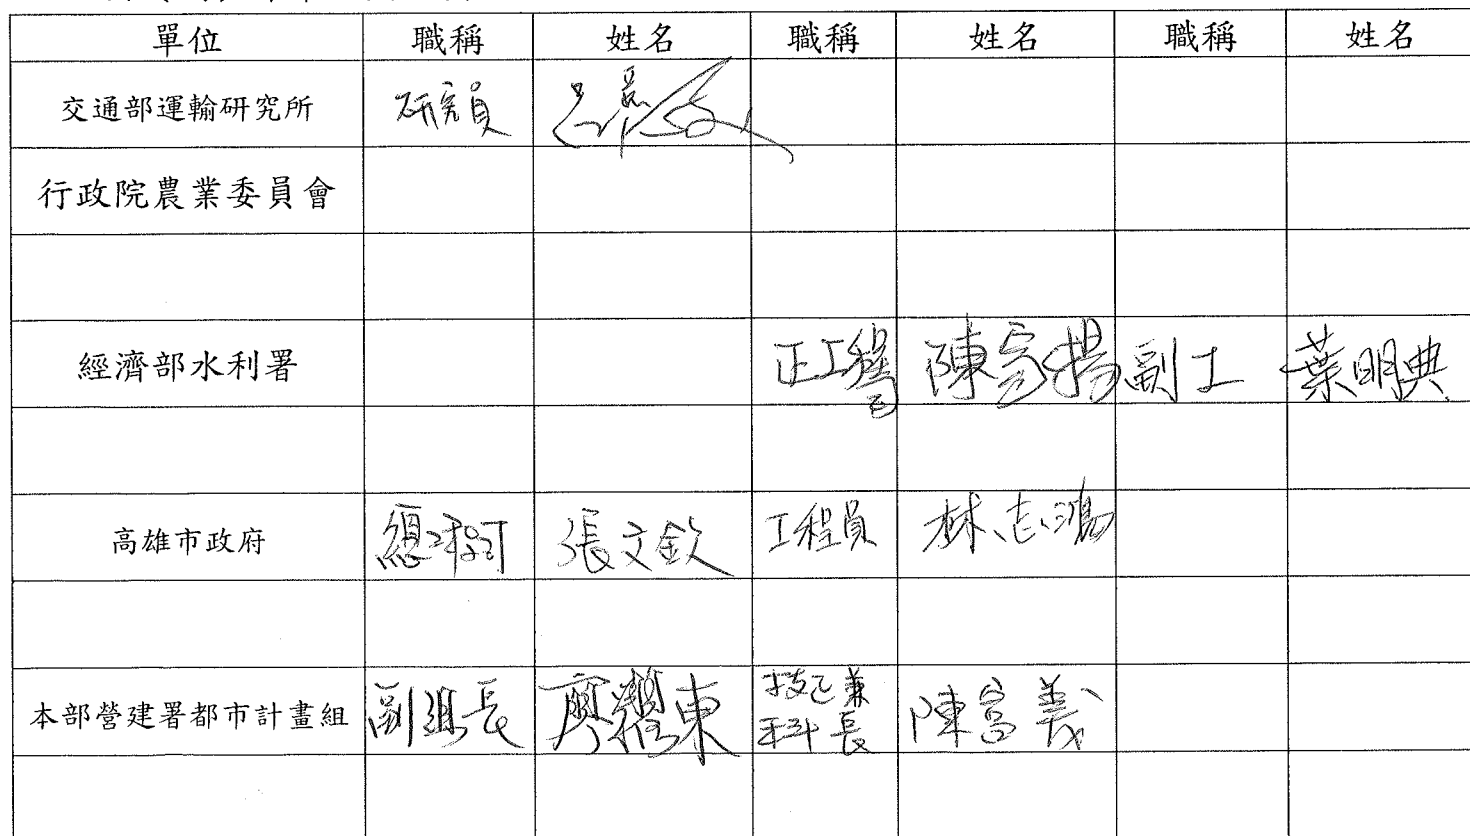 單位 職稱 姓名 職稱 姓名 職稱 姓名
交通部運輸研究所 研究員
行政院農業委員會
經濟部水利署 正工程司 陳 揚 副工 葉明典
高雄市政府 張文欽 工程員 林志鴻
本部營建署都市計畫組 副組長 廖耀東 技正兼
科長 陳富義